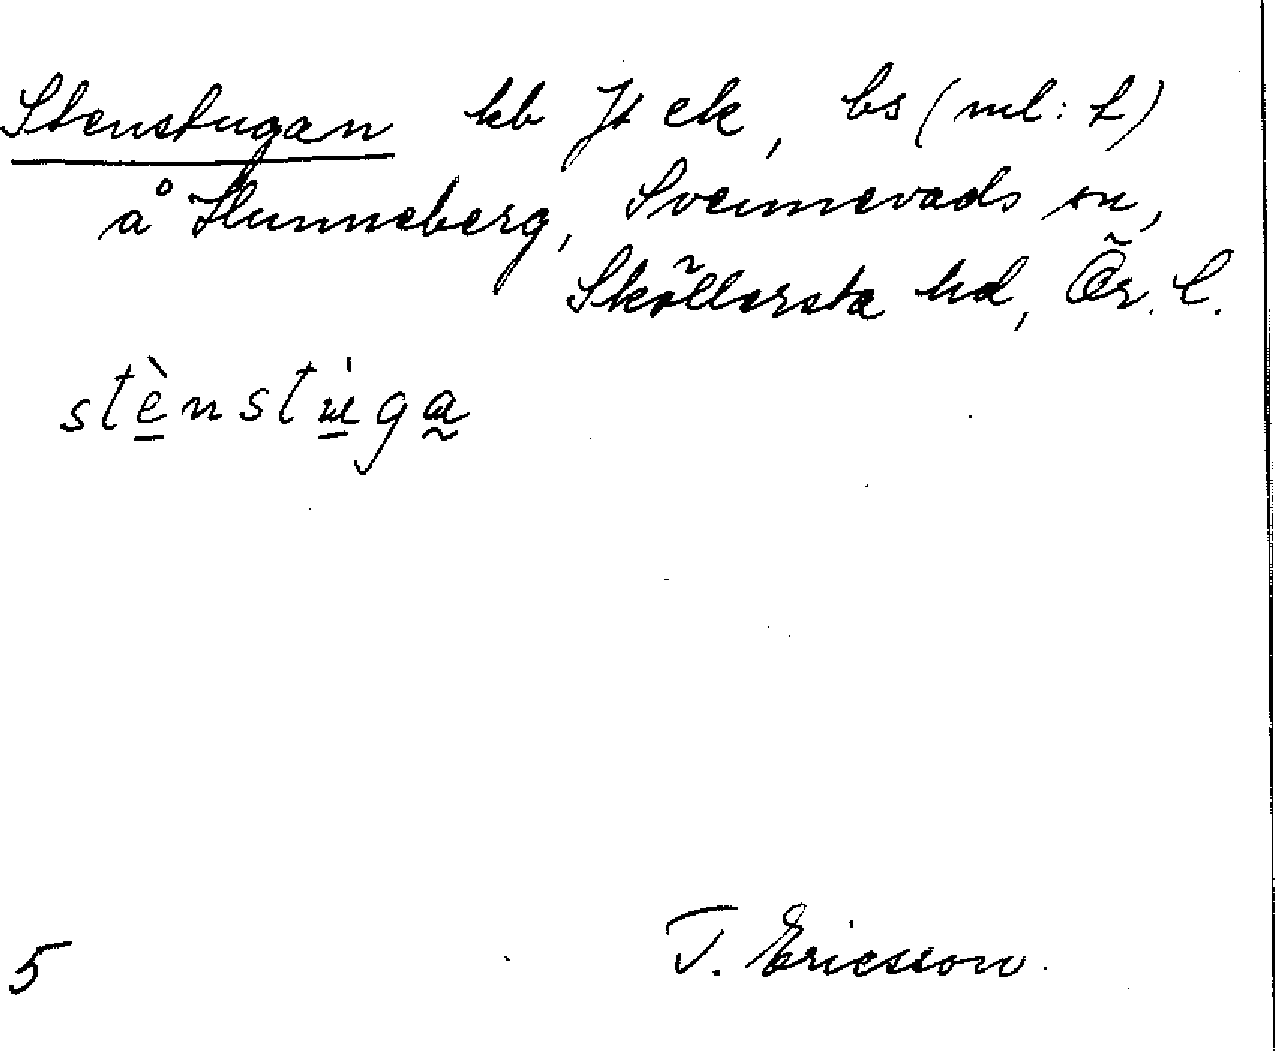 Stenstugan kb Jt ek, bs (ml: L)
å Hunneberg, Svennevads sn,
Sköllersta hd, Ör. l.
stènstùga
5 T. Ericsson